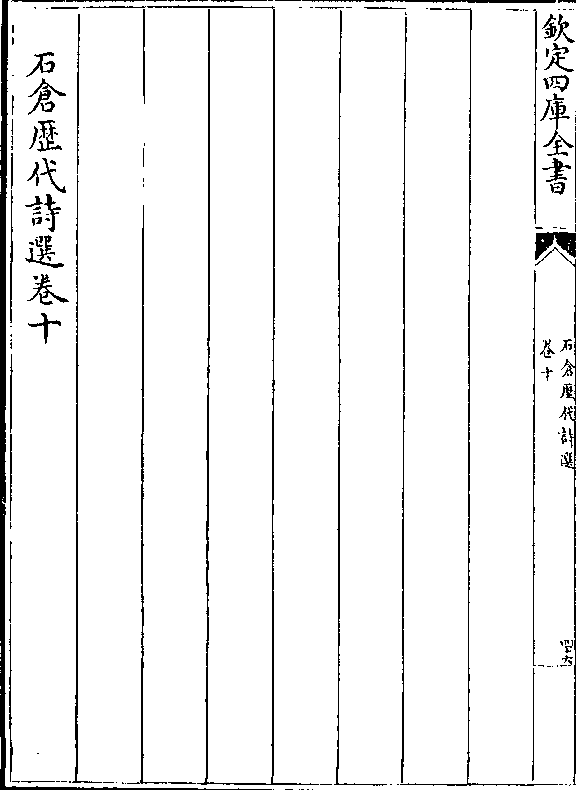 欽定四庫全書
石倉歷代詩選
卷十
四六
石倉歷代詩選卷十